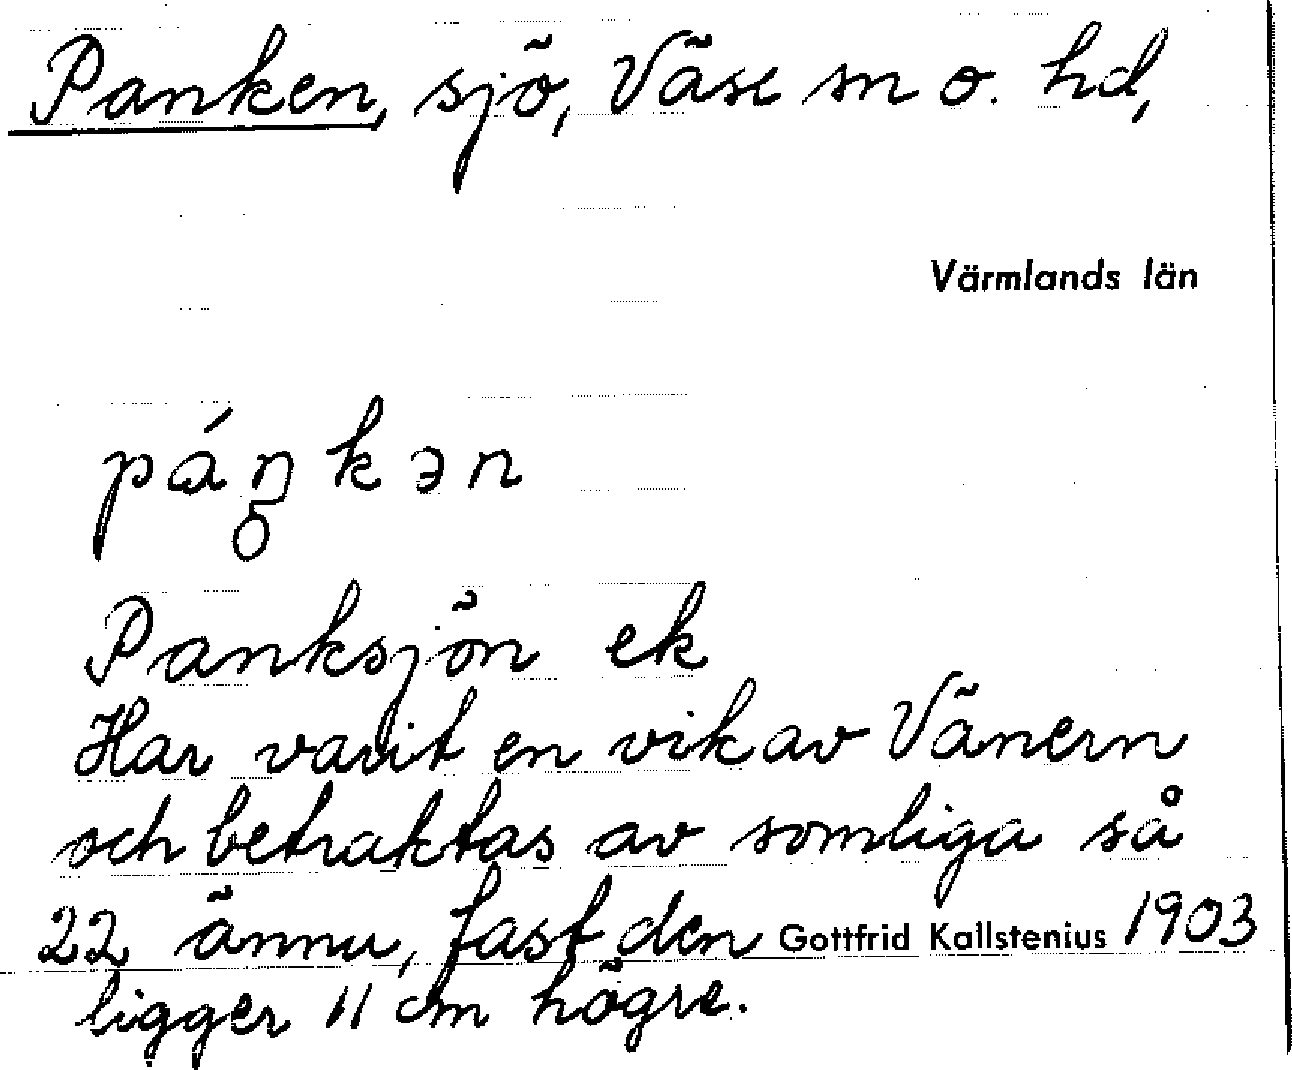 Panken, sjö, Väse sn o. hd,
Värmlands län
páŋkən
Panksjön ek
Har varit en vik av Vänern
och betraktas av somliga så
22 ännu, fast den Gottfrid Kallstenius 1903
ligger 11 cm högre.